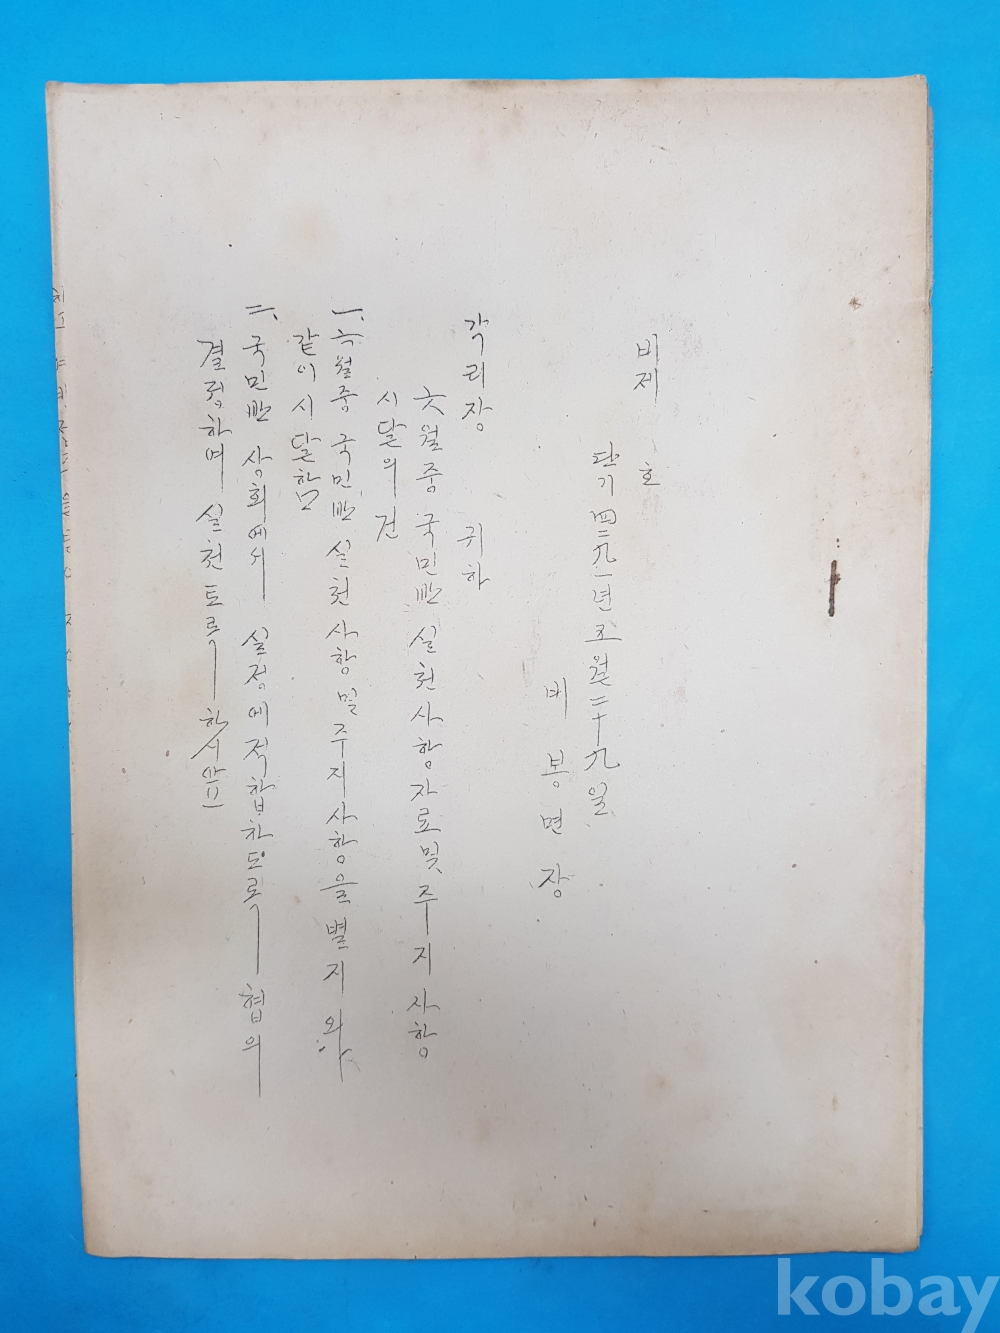 비제 호
단기 四二九一년 五월 二十九일
비봉면장
각리장 귀하
六월중 국민반 실천사항자료 및 주지사항
시달의 건
一、六월중 국민반 실천사항 및 주지사항을 별지와
같이 시달함
二、국민반 상회에서 실정에 적합하도록 협의
결정하여 실천토록 하시압
kobay